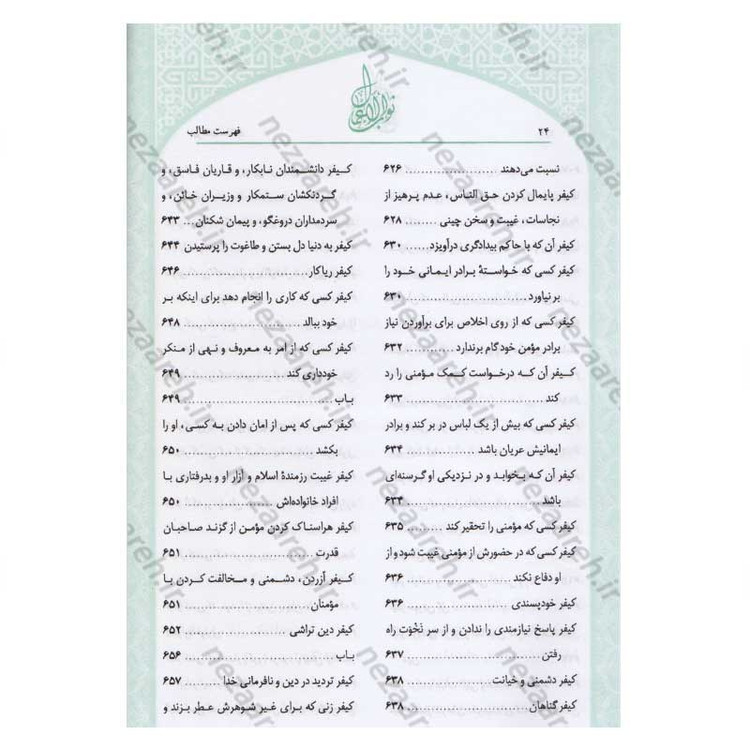 ثواب الاعمال
۲۴
فهرست مطالب
نسبت می‌دهند ........................ ۶۲۶
کیفر پایمال کردن حق الناس، عدم پرهیز از
نجاسات، غیبت و سخن چینی ........ ۶۲۸
کیفر آن که با حاکم بیدادگری درآویزد ...... ۶۳۰
کیفر کسی که خواستهٔ برادر ایمانی خود را
بر نیاورد ............................ ۶۳۰
کیفر کسی که از روی اخلاص برای برآوردن نیاز
برادر مؤمن خود گام برندارد .......... ۶۳۲
کیفر آن که درخواست کمک مؤمنی را رد
کند ............................ ۶۳۳
کیفر کسی که بیش از یک لباس در بر کند و برادر
ایمانیش عریان باشد ................ ۶۳۴
کیفر آن که بخوابد و در نزدیکی او گرسنه‌ای
باشد ............................ ۶۳۴
کیفر کسی که مؤمنی را تحقیر کند ......... ۶۳۵
کیفر کسی که در حضورش از مؤمنی غیبت شود و از
او دفاع نکند ........................ ۶۳۶
کیفر خودپسندی ........................ ۶۳۶
کیفر پاسخ نیازمندی را ندادن و از سر نَخْوَت راه
رفتن ............................ ۶۳۷
کیفر دشمنی و خیانت .................. ۶۳۸
کیفر گناهان ........................ ۶۳۸
کیفر دانشمندان نابکار، و قاریان فاسق، و
گردنکشان ستمکار و وزیران خائن، و
سردمداران دروغگو، و پیمان شکنان ... ۶۴۳
کیفر به دنیا دل بستن و طاغوت را پرستیدن ۶۴۴
کیفر ریاکار ........................ ۶۴۶
کیفر کسی که کاری را انجام دهد برای اینکه بر
خود ببالد ........................ ۶۴۸
کیفر کسی که از امر به معروف و نهی از منکر
خودداری کند ........................ ۶۴۹
باب ............................ ۶۴۹
کیفر کسی که پس از امان دادن به کسی، او را
بکشد ............................ ۶۵۰
کیفر غیبت رزمندهٔ اسلام و آزار او و بدرفتاری با
افراد خانواده‌اش .................... ۶۵۰
کیفر هراسناک کردن مؤمن از گزند صاحبان
قدرت ............................ ۶۵۱
کیفر آزردن، دشمنی و مخالفت کردن با
مؤمنان ........................ ۶۵۱
کیفر دین تراشی ........................ ۶۵۲
باب ............................ ۶۵۶
کیفر تردید در دین و نافرمانی خدا ........ ۶۵۷
کیفر زنی که برای غیر شوهرش عطر بزند و
nezaareh.ir